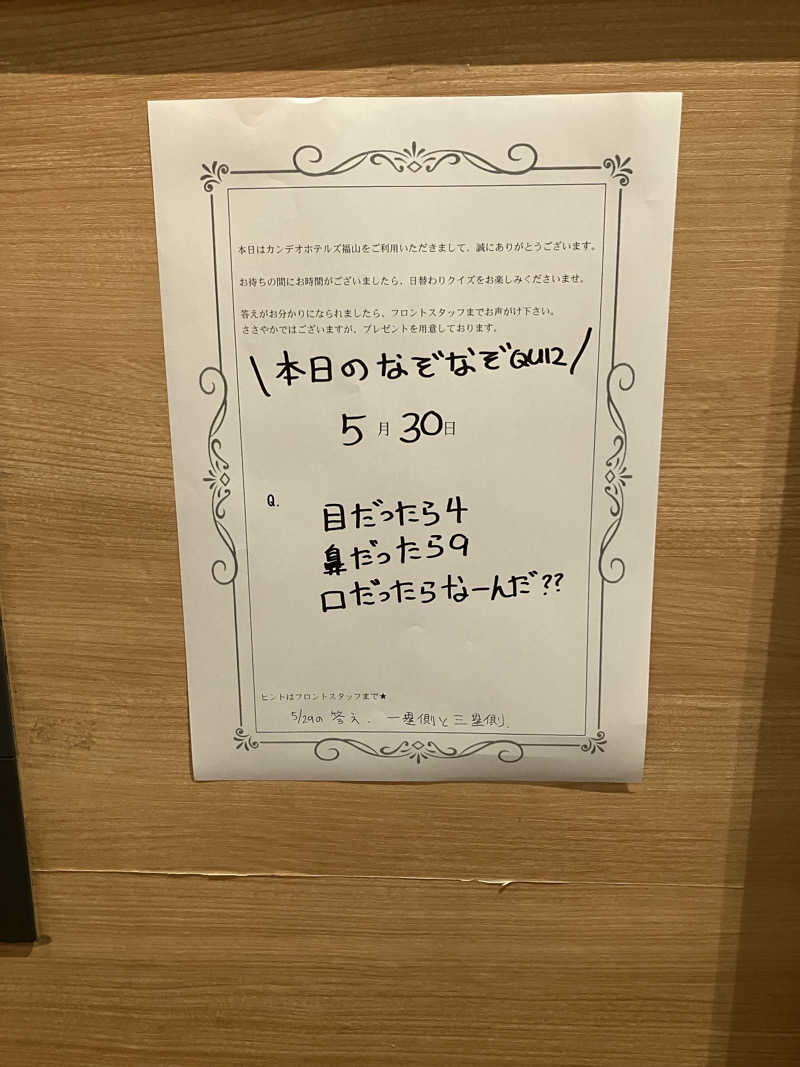 本日はカンデオホテルズ福山をご利用いただきまして、誠にありがとうございます。
お待ちの間にお時間がございましたら、日替わりクイズをお楽しみくださいませ。
答えがお分かりになられましたら、フロントスタッフまでお声がけ下さい。
ささやかではございますが、プレゼントを用意しております。
\本日のなぞなぞQUIZ/
5月30日
Q.
目だったら4
鼻だったら9
口だったらなーんだ??
ヒントはフロントスタッフまで★
5/29の答え. 一塁側と三塁側.